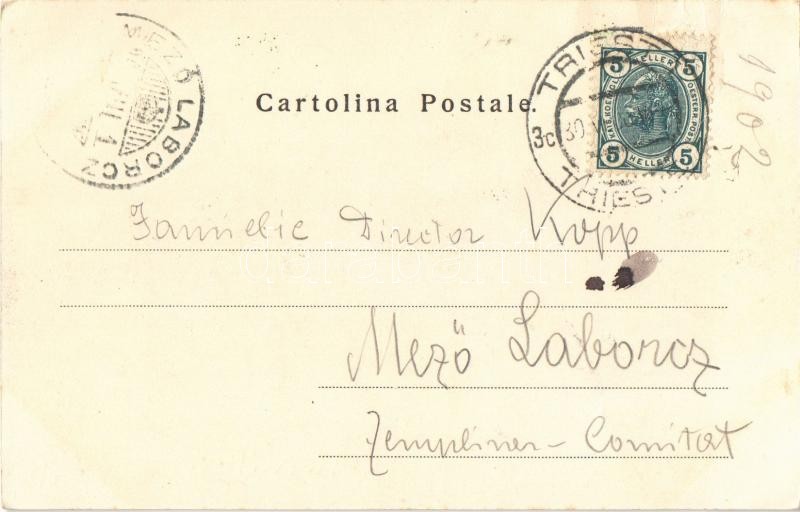 MEZŐ LABORCZ
Cartolina Postale.
TRIEST
3c
30
TRIEST
5 HELLER 5
KAIS. KOEN. OESTERR. POST
5 HELLER 5
1902
Familie Director Kopp
Mező Laborcz
Zempliner - Comitat